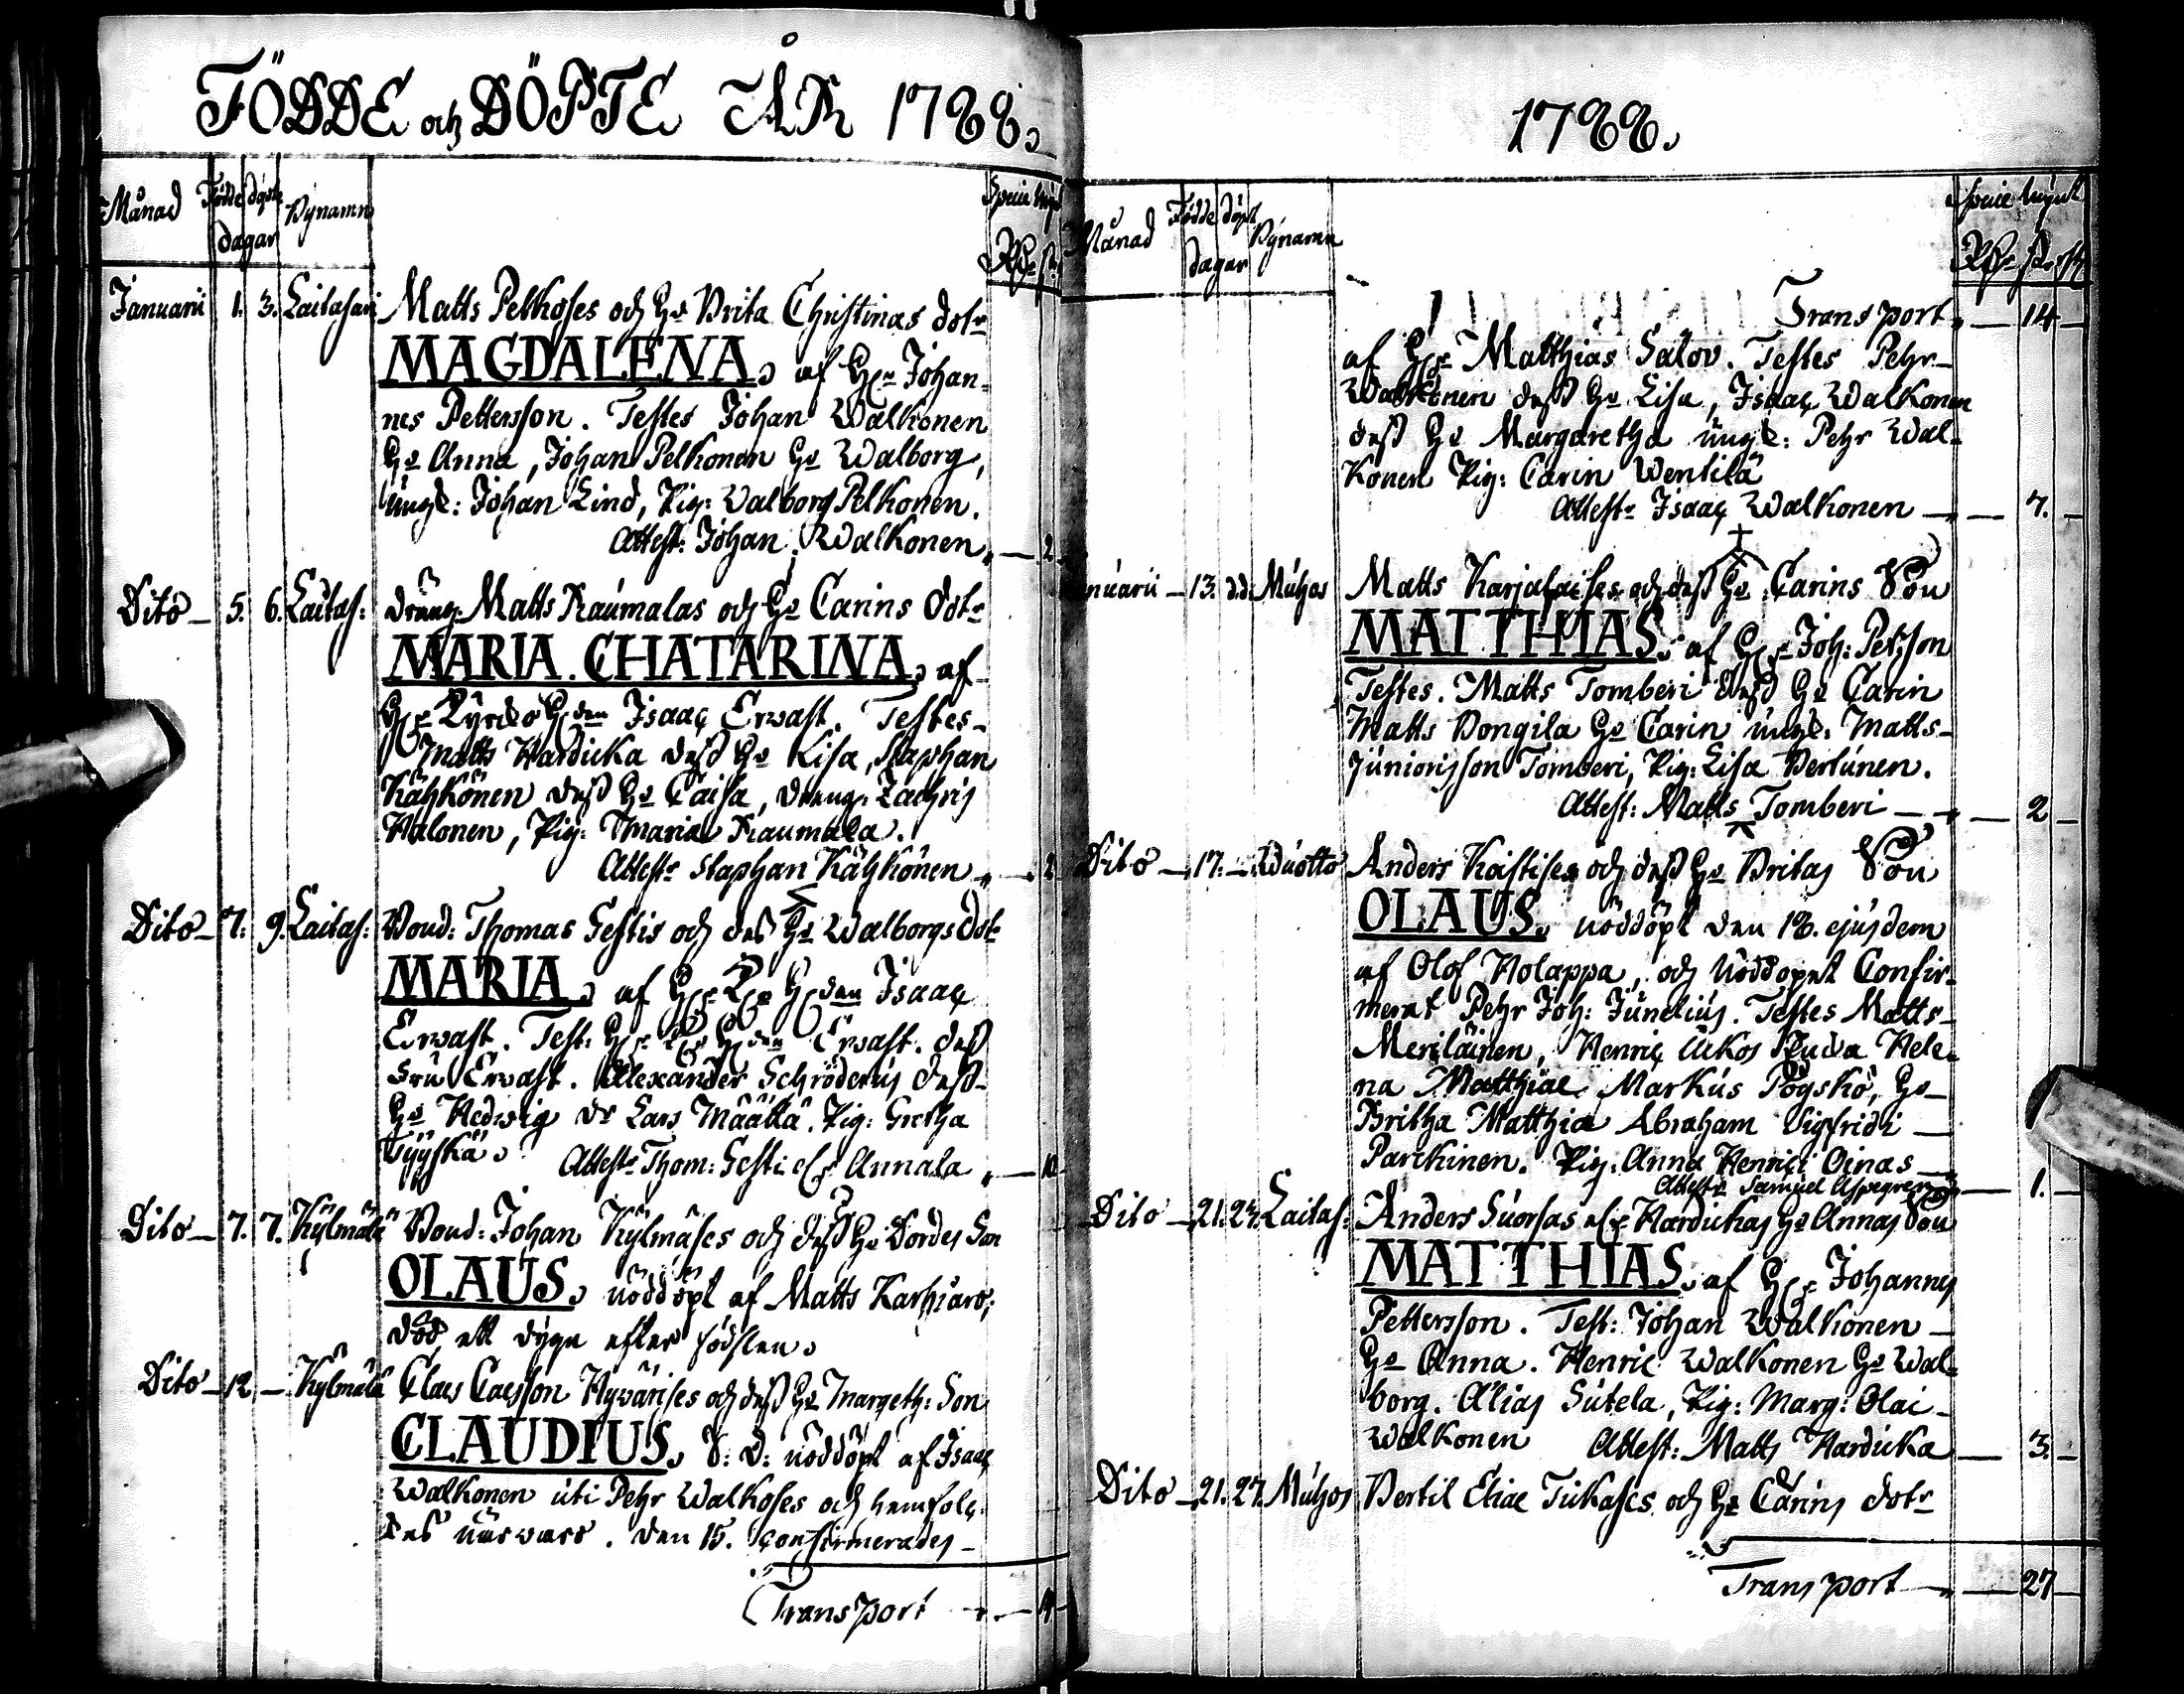 FÖDDE och DÖPTE ÅR 1788.
Månad Födde döpte Bÿnamn Specie Mÿnt
dagar Rdr sk:
Januarii 1. 3. Laitasari Matts Pelkoses och H:o Brita Christinas dotr
MAGDALENA. af Hr Johan-
nes Pettersson. Testes Johan Walkonen
H:o Anna, Johan Pelkonen H:o Walborg,
ungk: Johan Lind, Pig: Walborg Pelkonen.
Attest: Johan Walkonen 2
Dito 5. 6. Laitas: dräng: Matts Raumalas och H:o Carins dotr
MARIA. CHATARINA. af
Hr Kyrcko Hden Isaac Erwast. Testes
Matts Hardicka dess H:o Lisa, Staphan
Kähkönen dess H:o Caisa, dräng: Zachris
Halonen, Pig: Maria Raumala.
Attestr Staphan Kähkönen 2
Dito 7. 9. Laitas: Bond: Thomas Sestis och des H:o Walborgs dotr
MARIA. af Hr K Hden Isaac
Erwast. Test: Hr K Hden Erwast. dess
Fru Erwast. Alexander Schröderus dess
H:o Hedwig dr Lars Määttä. Pig: Gretha
Tyyskä. Attestr Thom: Sesti elr Annala 10
Dito 7. 7. Kylmälä Bond: Johan Kylmäses och dess H:o Bordes Son
OLAUS. nöddöpt af Matts Karhiaro;
död ett dygn efter födslen.
Dito 12. Kylmälä Claes Caesson Hyvärises och dess H:o Margeth: Son
CLAUDIUS. S: D: nöddöpt af Isaac
Walkonen uti Pehr Walkoses och hemfolc
des närvaro. den 15. confirmerades
Transport 14
1788.
Månad Födde döpt Bÿnamn Specie Mÿnt
dagar Rdr sk. rst
Transport 14
af Hr Matthias Salov. Testes Pehr
Walkonen dess H:o Lisa, Isaac Walkonen
dess H:o Margaretha ungk: Pehr Wal-
konen Pig: Carin Wentilä
Attestr Isaac Walkonen 7.
Januarii 13. d.d. Muhos Matts Karjalaises och dess H:o Carins Son
MATTHIAS. af Hr Joh: Petsson
Testes. Matts Tomberi dess H:o Carin
Matts Bongila H:o Carin ungk: Matts
Juniorisson Tomberi, Pig: Lisa Pertunen.
Attest: Matts Tomberi 2
Dito 17. Wuotto Anders Kaistises och dess H:o Britas Son
OLAUS. nöddöpt den 18. ejusdem
af Olof Holappa, och Nöddopet Confir-
merat Pehr Joh: Junelius. Testes Matts
Meriläinen, Henric Ukos Hele-
na Matthiae Markus Pögskö, H:o
Britha Matthiae Abraham Sigfridi
Parckinen. Pig: Anna Henrici Oinas
Attestr Samuel Aspegren 1.
Dito 21. 27. Laitas: Anders Suorsas elr Hardickas H:o Annas Son
MATTHIAS. af Hr Johannes
Pettersson. Test: Johan Walkonen
H:o Anna. Henric Walkonen H:o Wal-
borg. Elias Sutela, Pig: Marg: Olai
Walkonen Attest: Matts Hardicka 3.
Dito 21. 27. Muhos Bertil Eliae Tickases och H:o Carins dotr
Transport 27